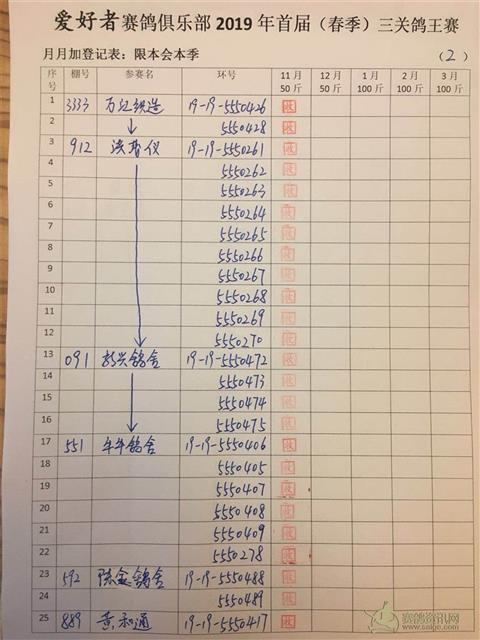 爱好者赛鸽俱乐部 2019 年首届（春季）三关鸽王赛
月月加登记表：限本会本季 （2）
序号 棚号 参赛名 环号 11月 50斤 12月 50斤 1月 100斤 2月 100斤 3月 100斤
1 3333 19-19-5550426
2 5550428
3 912 洪 仪 19-19-5550261
4 5550262
5 5550263
6 5550264
7 5550265
8 5550266
9 5550267
10 5550268
11 5550269
12 5550270
13 091 兴鸽舍 19-19-5550472
14 5550473
15 5550474
16 5550475
17 551 牛牛鸽舍 19-19-5550406
18 5550405
19 5550407
20 5550408
21 5550409
22 5550278
23 592 陈 鸽舍 19-19-5550488
24 5550489
25 889 黄和通 19-19-5550417
赛鸽资讯网
www.saige.com